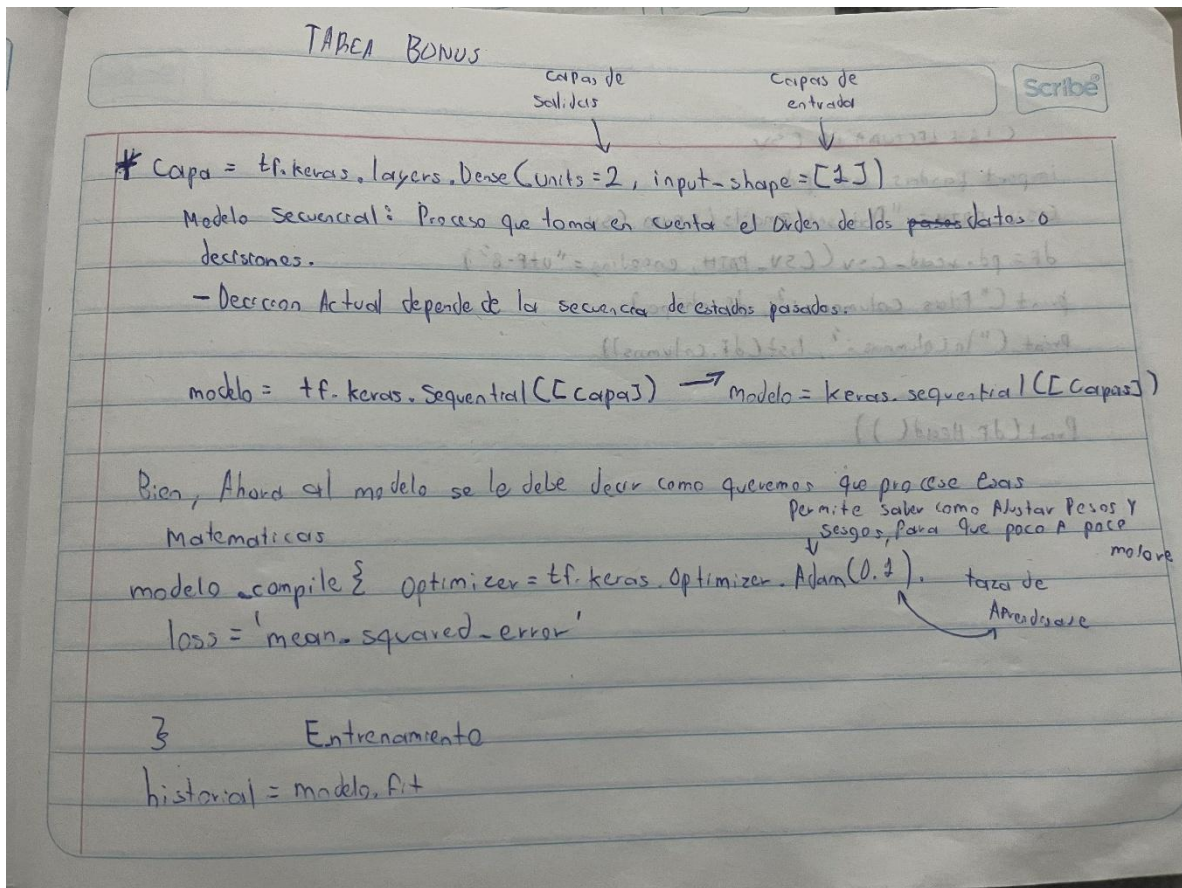 TAREA BONUS
capas de
salidas
Capas de
entrada
Scribe
* Capa = tf.keras.layers.Dense(units=2, input-shape=[1])
Modelo Secuencial: Proceso que toma en cuenta el Orden de los pasos datos o
decisiones.
- Decicion Actual depende de la secuencia de estados pasados.
modelo = tf.keras.Sequential([Capa]) → modelo = keras.sequential([Capas])
Bien, Ahora al modelo se le debe decir como queremos que procese esas
Matematicas
Permite saber como Ajustar Pesos Y
sesgos, Para que poco A poco
mejore
modelo.compile { Optimizer = tf.keras.Optimizer.Adam(0.1).
taza de
Aprendisaje
loss = 'mean_squared_error'
} Entrenamiento
historial = modelo.fit